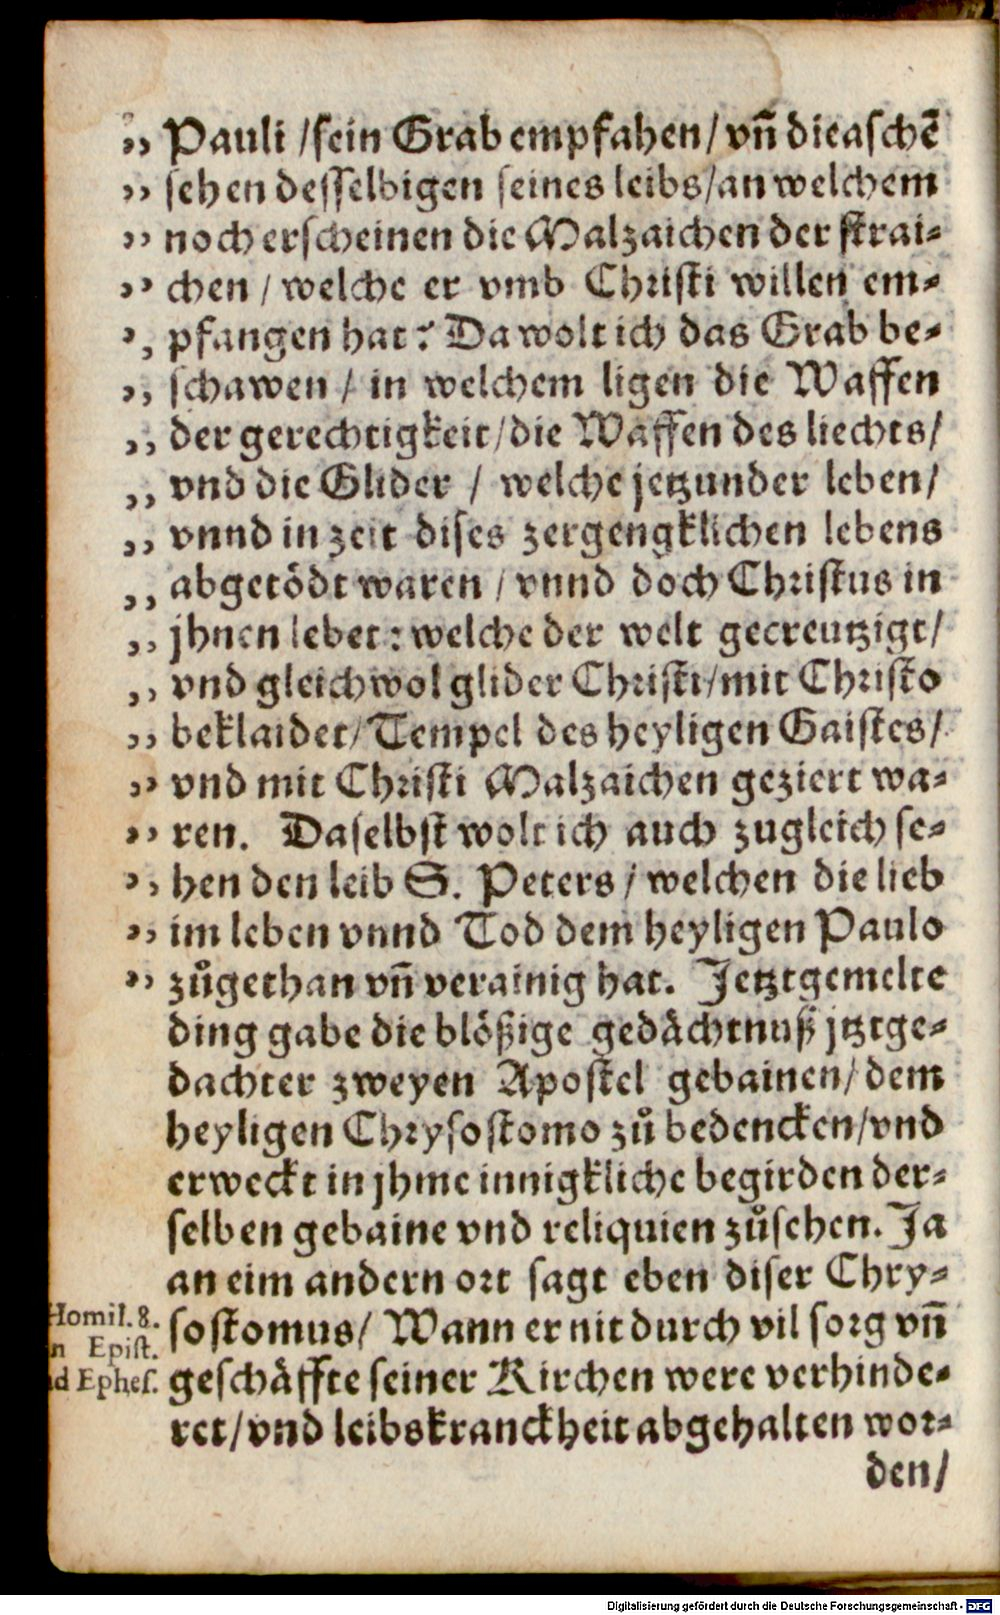 „ Pauli /sein Grab empfahen/ vñ die aschē
„ sehen desselbigen seines leibs/an welchem
„ noch erscheinen die Malzaichen der strai-
„ chen / welche er vmb Christi willen em-
„ pfangen hat? Da wolt ich das Grab be-
„ schawen / in welchem ligen die Waffen
„ der gerechtigkeit/die Waffen des liechts/
„ vnd die Glider / welche jetzunder leben/
„ vnnd in zeit dises zergengklichen lebens
„ abgetödt waren / vnnd doch Christus in
„ jhnen lebet: welche der welt gecreutzigt/
„ vnd gleichwol glider Christi/mit Christo
„ beklaidet/ Tempel des heyligen Gaistes/
„ vnd mit Christi Malzaichen geziert wa-
„ ren. Daselbst wolt ich auch zugleich se-
„ hen den leib S. Peters / welchen die lieb
„ im leben vnnd Tod dem heyligen Paulo
„ zůgethan vñ verainig hat. Jetztgemelte
ding gabe die blößige gedächtnuß jtztge-
dachter zweyen Apostel gebainen/ dem
heyligen Chrysostomo zů bedencken/vnd
erweckt in jhme innigkliche begirden der-
selben gebaine vnd reliquien zůsehen. Ja
an eim andern ort sagt eben diser Chry-
Homil. 8.
n Epist.
ad Ephes.
sostomus/ Wann er nit durch vil sorg vñ
geschäffte seiner Kirchen were verhinde-
ret/vnd leibskranckheit abgehalten wor-
den/
Digitalisierung gefördert durch die Deutsche Forschungsgemeinschaft - DFG